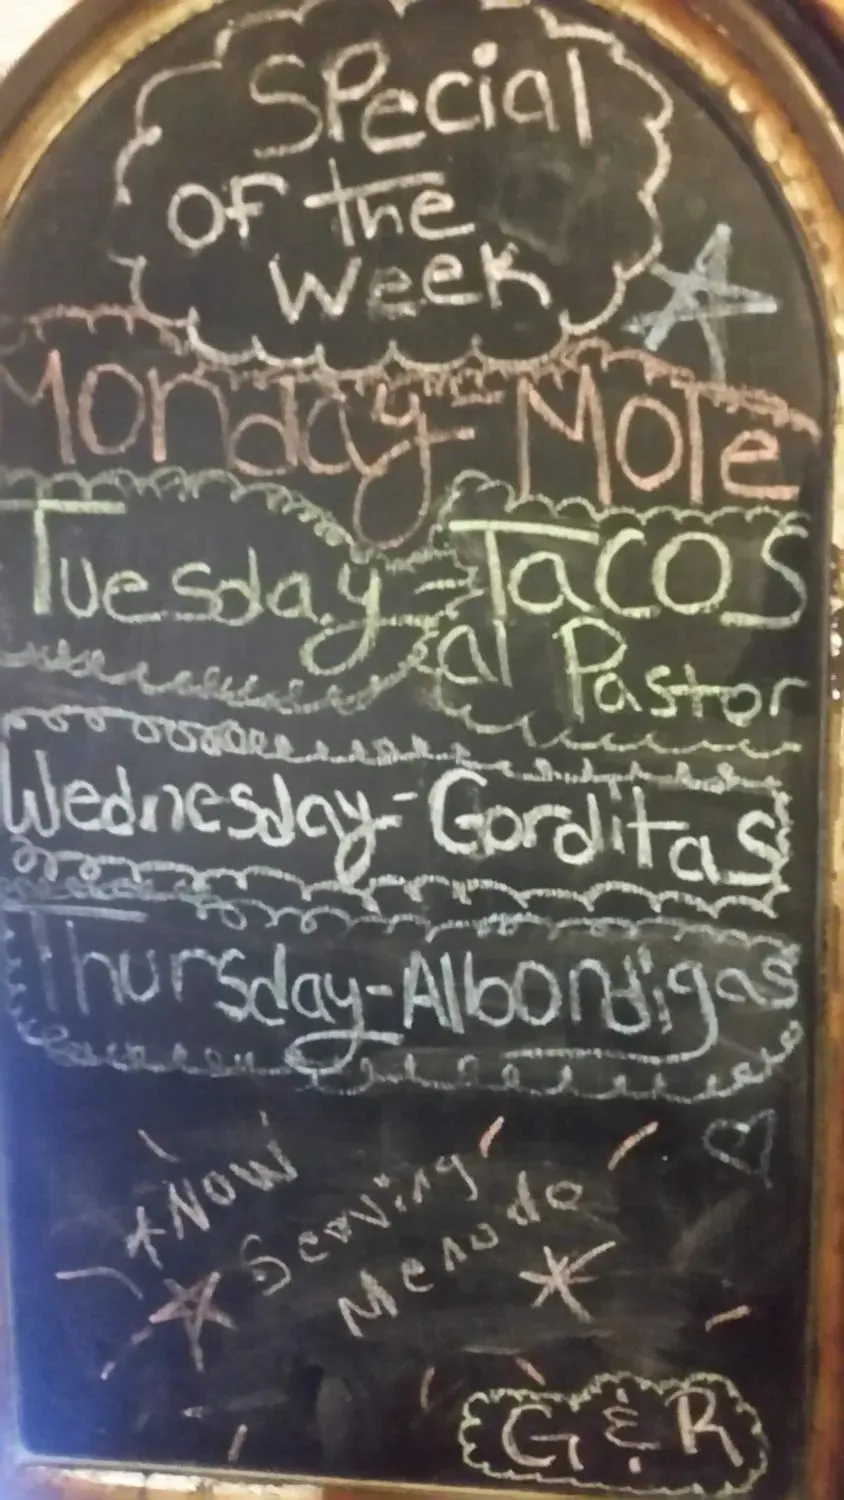 Special
Of the
Week
Monday-Mole
Tuesday-Tacos
al Pastor
Wednesday-Gorditas
Thursday-Albondigas
Now
Serving
Menudo
G & R